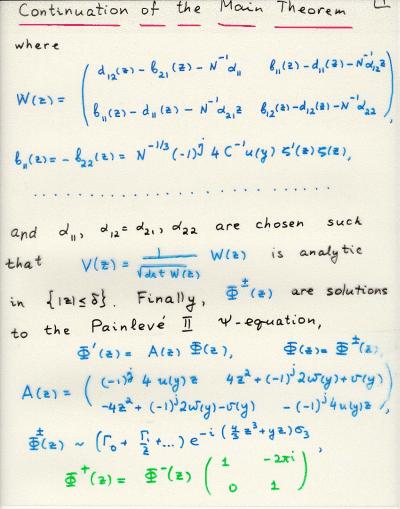 Continuation of the Main Theorem
where
W(z) = ( d₁₂(z) − b₂₁(z) − N⁻¹α₁₁   b₁₁(z) − d₁₁(z) − N⁻¹α₁₂z
b₁₁(z) − d₁₁(z) − N⁻¹α₂₁z   b₁₂(z) − d₁₂(z) − N⁻¹α₂₂ ),
b₁₁(z) = − b₂₂(z) = N⁻¹ᐟ³ (−1)ʲ 4 C⁻¹ u(y) ζ'(z) ζ(z),
. . . . . . . . . . . . . . . . . . . . . . . . . . . .
and α₁₁, α₁₂ = α₂₁, α₂₂ are chosen such
that V(z) = 1/√(det W(z)) W(z) is analytic
in {|z| ≤ δ}. Finally, Φ^±(z) are solutions
to the Painlevé II Ψ-equation,
Φ'(z) = A(z) Φ(z), Φ(z) = Φ^±(z),
A(z) = ( (−1)ʲ 4 u(y) z   4z² + (−1)ʲ 2w(y) + v(y)
−4z² + (−1)ʲ 2w(y) − v(y)   −(−1)ʲ 4u(y) z ),
Φ^±(z) ~ (Γ₀ + Γ₁/z + ...) e^{−i(4/3 z³ + yz)σ₃},
Φ⁺(z) = Φ⁻(z) ( 1   −2πi
0   1 )